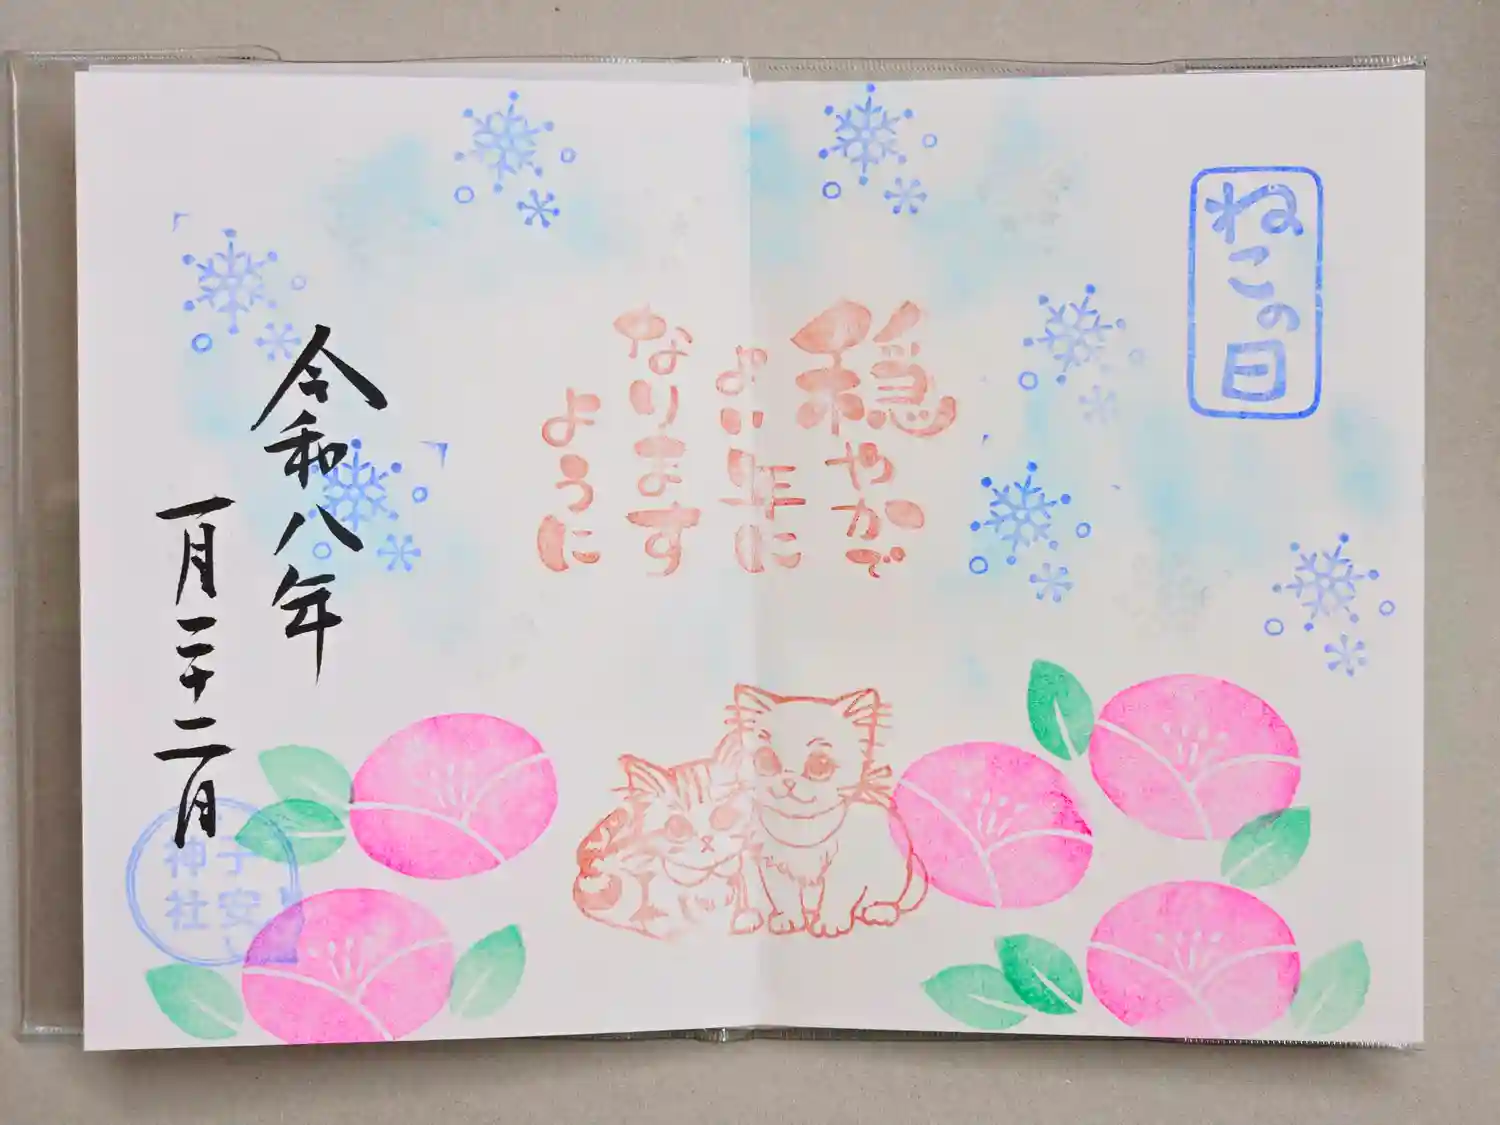 ねこの日
穏やかで
よい年に
なります
ように
令和八年
一月二十二日
子安
神社